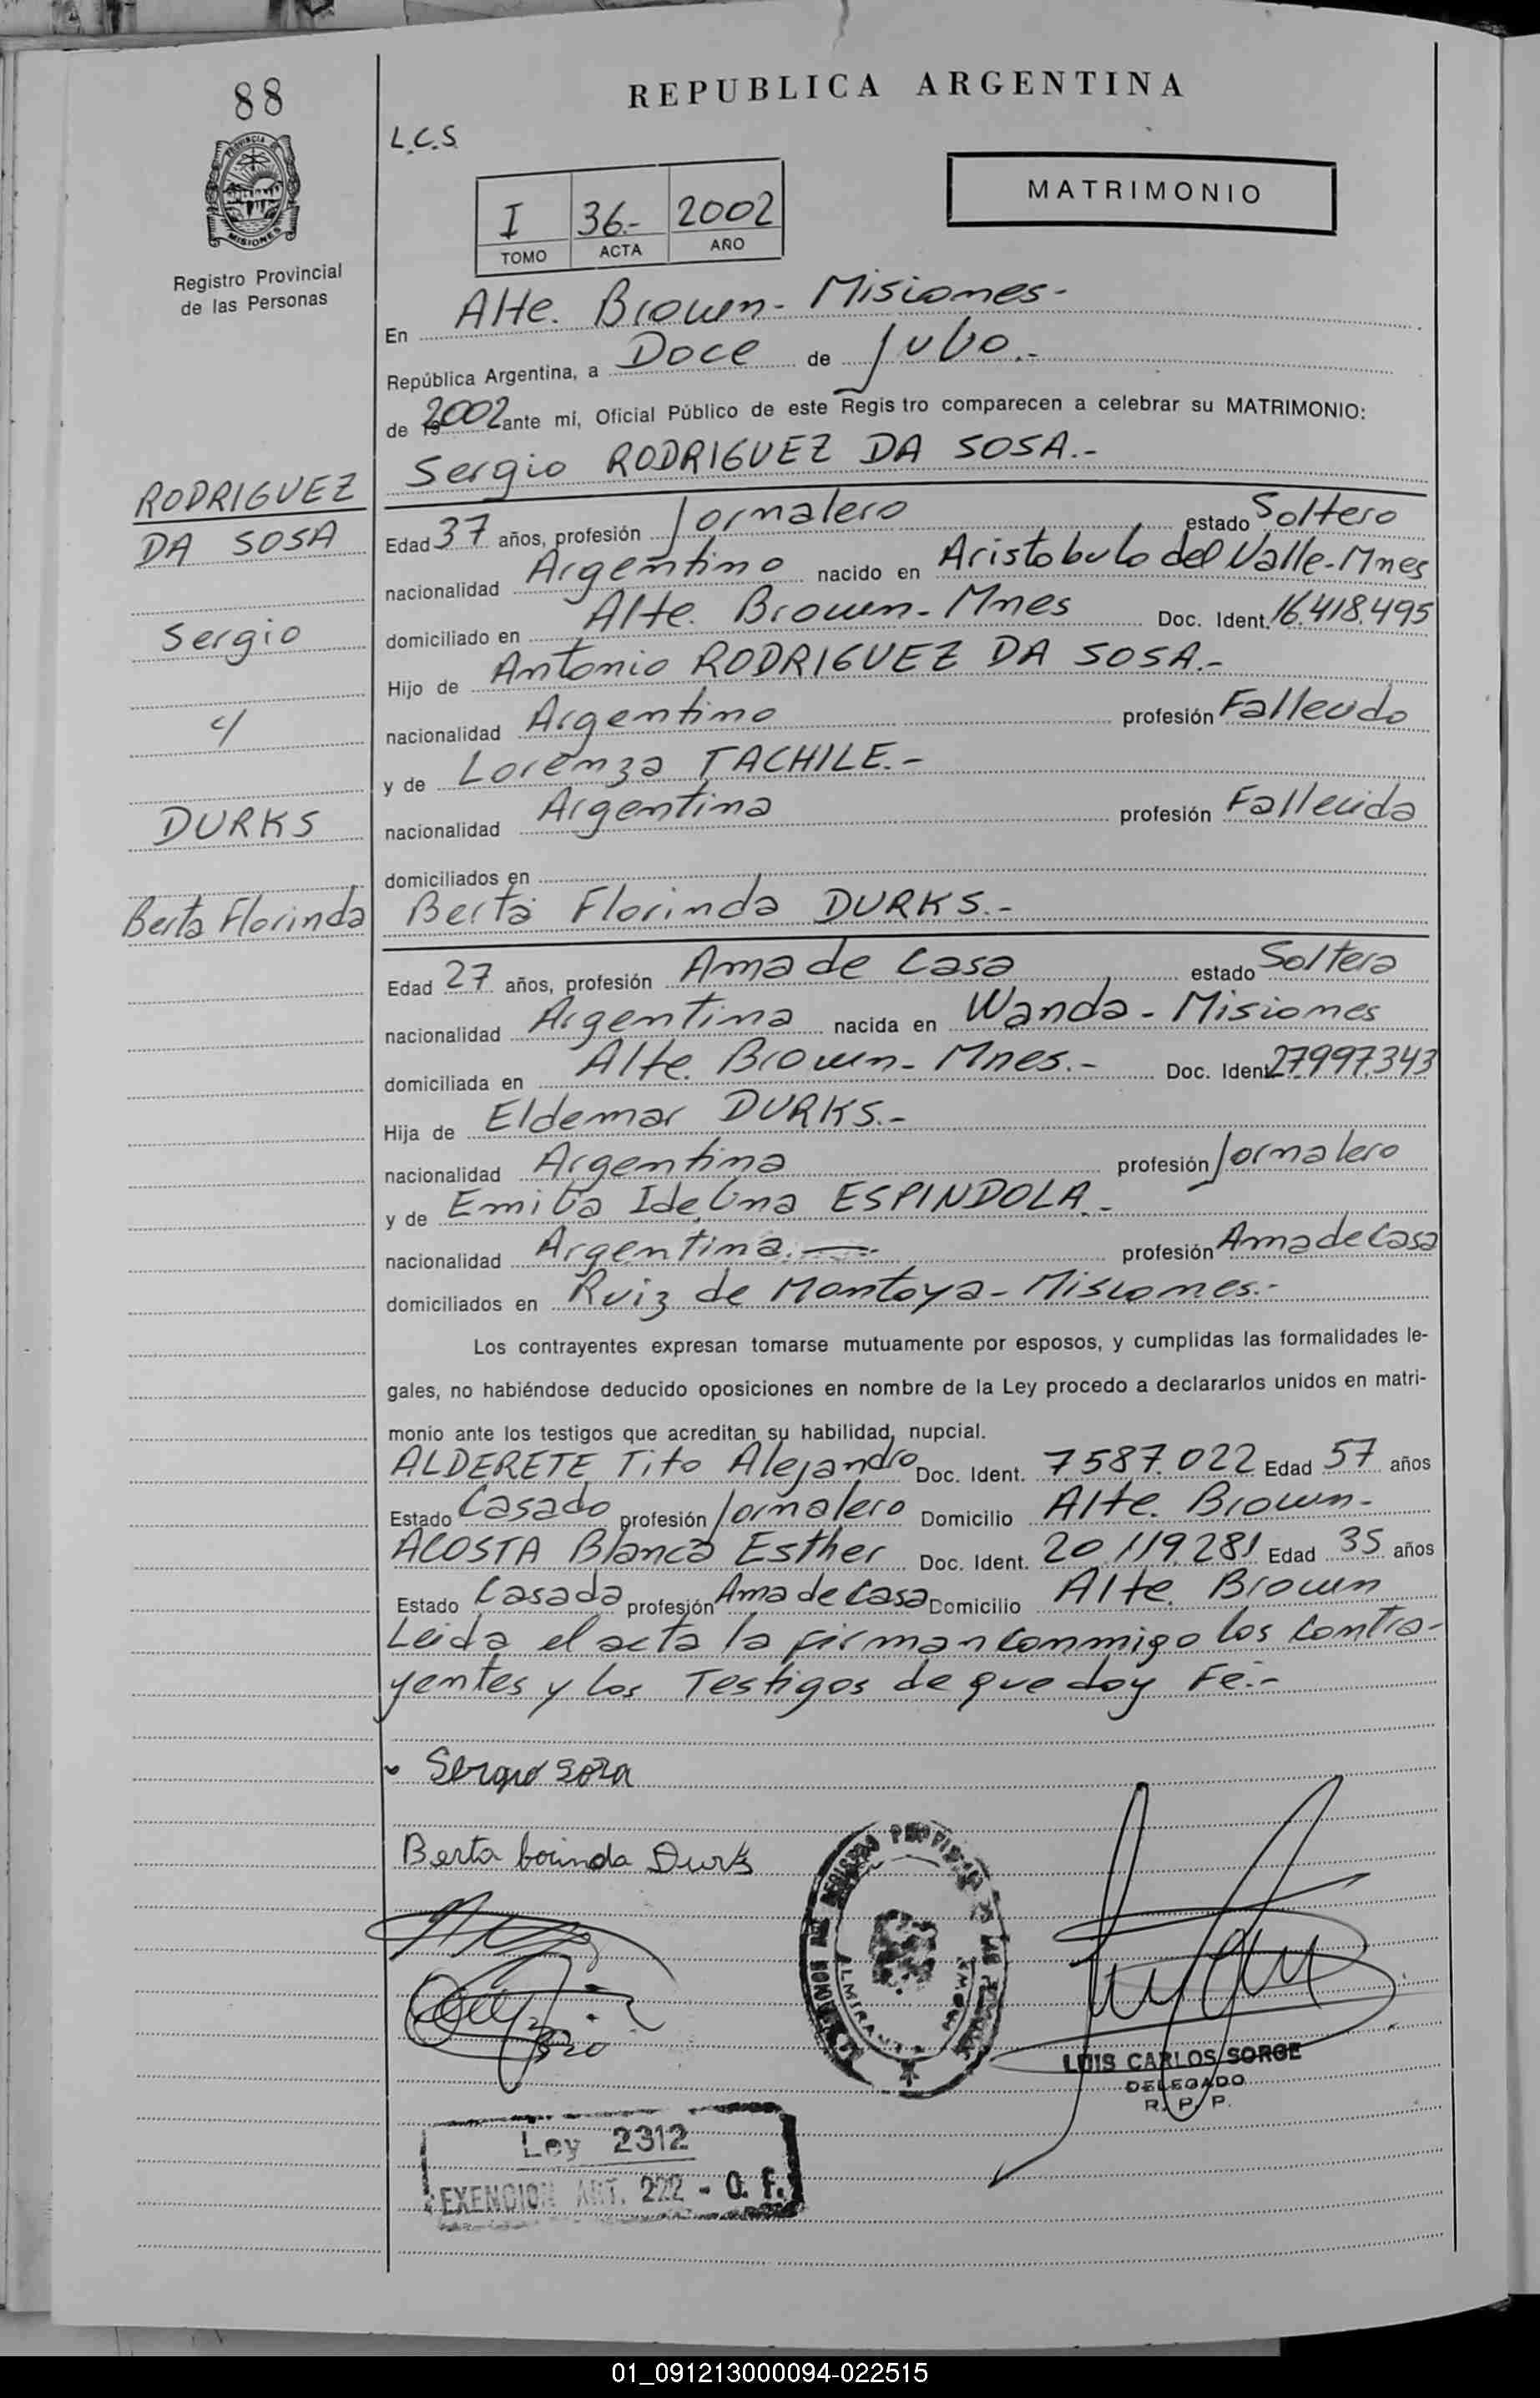 88
REPUBLICA ARGENTINA
L.C.S.
PROVINCIA DE
MISIONES
Registro Provincial
de las Personas
MATRIMONIO
I 36.- 2002
TOMO ACTA AÑO
En Alte. Brown - Misiones -
República Argentina, a Doce de Julio.-
de 2002 ante mí, Oficial Público de este Regis tro comparecen a celebrar su MATRIMONIO:
Sergio RODRIGUEZ DA SOSA.-
RODRIGUEZ
DA SOSA
Sergio
y
DURKS
Berta Florinda
Edad 37 años, profesión Jornalero estado Soltero
nacionalidad Argentino nacido en Aristobulo del Valle - Mnes
domiciliado en Alte. Brown - Mnes Doc. Ident. 16.418.495
Hijo de Antonio RODRIGUEZ DA SOSA.-
nacionalidad Argentino profesión Fallecido
y de Lorenza TACHILE.-
nacionalidad Argentina profesión Fallecida
domiciliados en
Berta Florinda DURKS.-
Edad 27 años, profesión Ama de Casa estado Soltera
nacionalidad Argentina nacida en Wanda - Misiones
domiciliada en Alte. Brown - Mnes.- Doc. Ident. 27.997.343
Hija de Eldemar DURKS.-
nacionalidad Argentina profesión Jornalero
y de Emilia Idelina ESPINDOLA.-
nacionalidad Argentina.- profesión Ama de Casa
domiciliados en Ruiz de Montoya - Misiones.-
Los contrayentes expresan tomarse mutuamente por esposos, y cumplidas las formalidades le-
gales, no habiéndose deducido oposiciones en nombre de la Ley procedo a declararlos unidos en matri-
monio ante los testigos que acreditan su habilidad nupcial.
ALDERETE Tito Alejandro Doc. Ident. 7.587.022 Edad 57 años
Estado Casado profesión Jornalero Domicilio Alte. Brown -
ACOSTA Blanca Esther Doc. Ident. 20.119.281 Edad 35 años
Estado Casada profesión Ama de Casa Domicilio Alte. Brown
Leida el acta la firman conmmigo los contra-
yentes y los Testigos de que doy Fe.-
Sergio Sosa
Berta lorinda Durks
REGISTRO PROVINCIAL DE LAS PERSONAS
ALMIRANTE BROWN
MISIONES
LUIS CARLOS SORGE
DELEGADO
R. P. P.
Ley 2312
EXENCION ART. 222 - O. F.
01_091213000094-022515